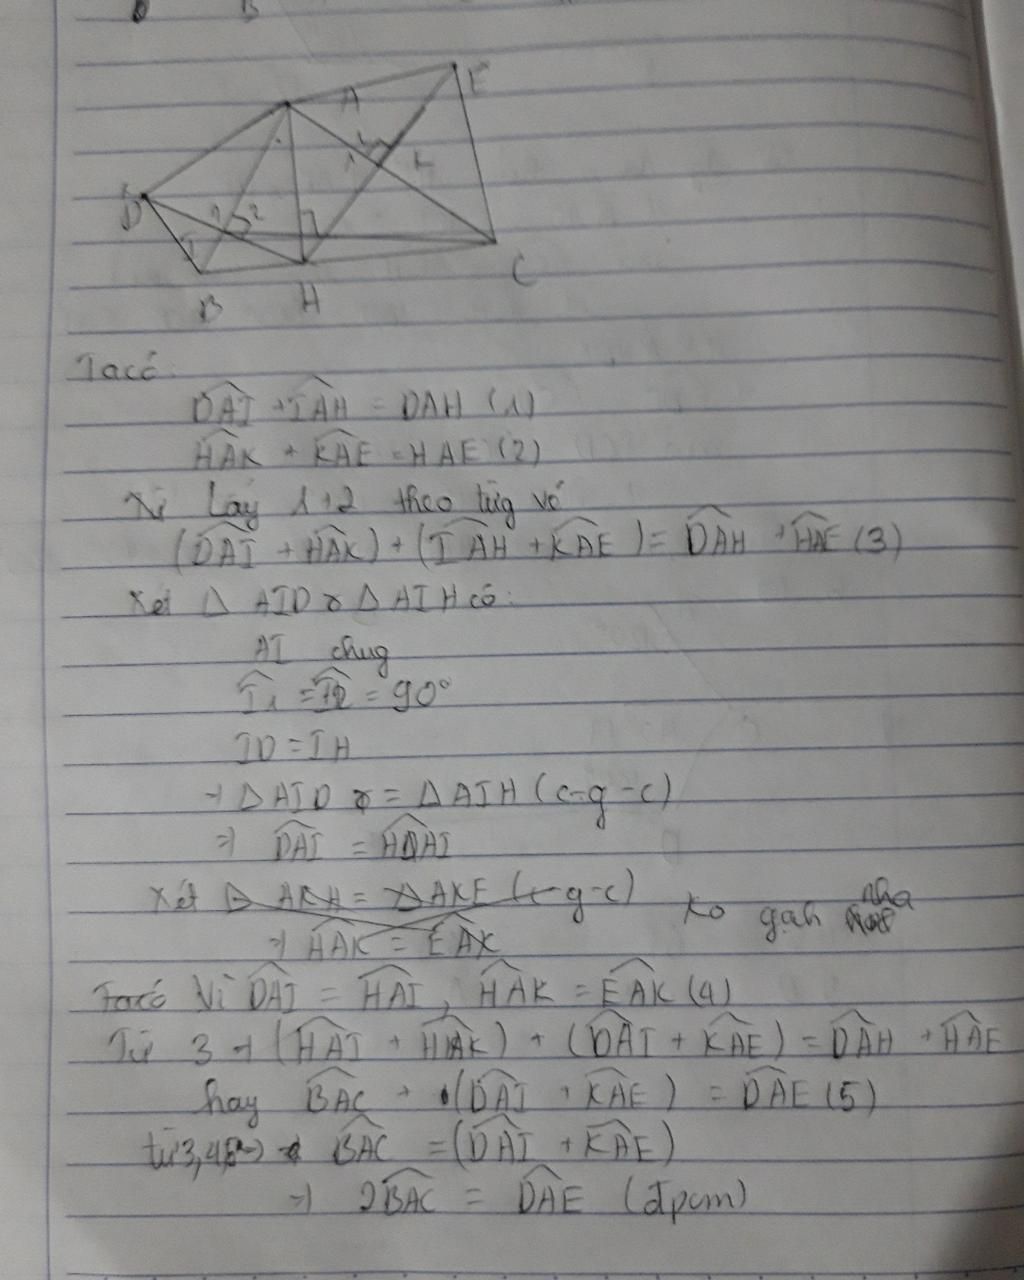 B
A
E
D
1 2
I
1 2
K
B
H
C
Ta có:
DAI + IAH = DAH (1)
HAK + KAE = HAE (2)
Lấy 1+2 theo từg vế
(DAI + HAK) + (IAH + KAE) = DAH + HAE (3)
Xét Δ AID & Δ AIH có:
AI chug
I1 = I2 = 90°
ID = IH
→ Δ AID = Δ AIH (c-g-c)
⇒ DAI = HAI
Xét Δ AKH = Δ AKE (c-g-c) ko gạh nha
⇒ HAK = EAK
Ta có Vì DAI = HAI, HAK = EAK (4)
Từ 3 → (HAI + HAK) + (DAI + KAE) = DAH + HAE
hay BAC + (DAI + KAE) = DAE (5)
từ 3,4,5 → BAC = (DAI + KAE)
⇒ 2BAC = DAE (đpcm)